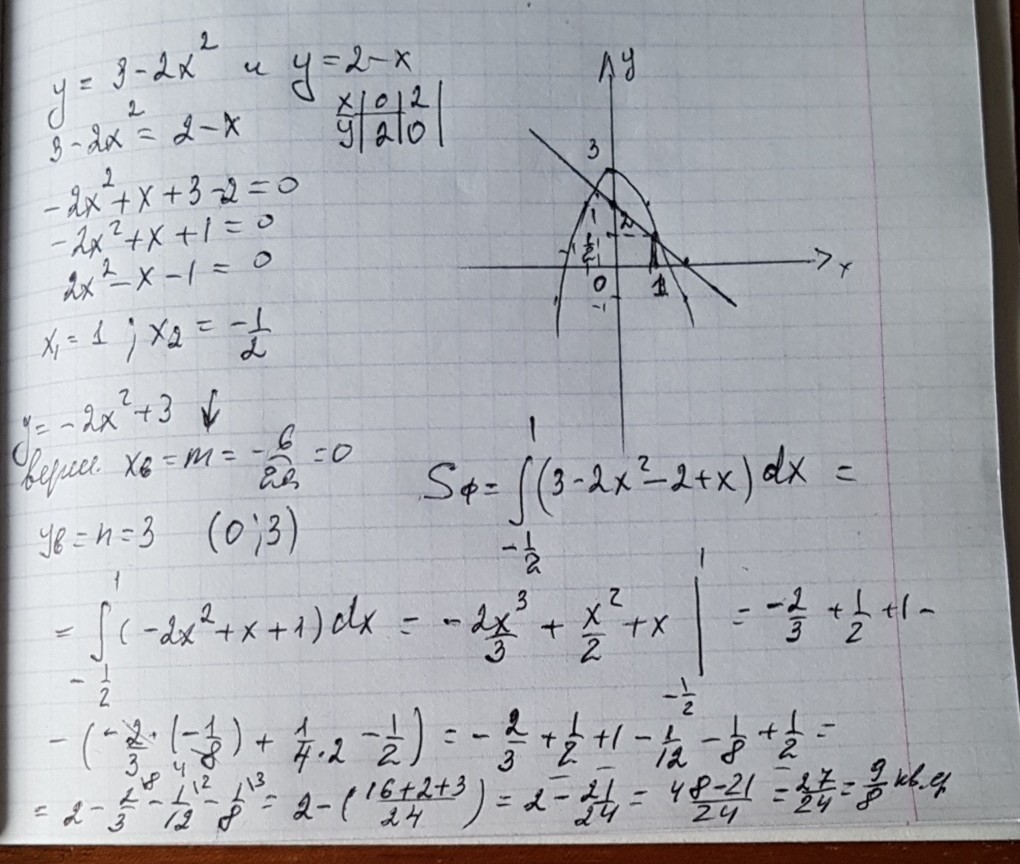 y = 3 - 2x² и y = 2 - x
3 - 2x² = 2 - x
x | 0 | 2
y | 2 | 0
-2x² + x + 3 - 2 = 0
-2x² + x + 1 = 0
2x² - x - 1 = 0
x₁ = 1 ; x₂ = -1/2
y = -2x² + 3 ↓
верш. xв = m = -в/2a = 0
yв = n = 3 (0; 3)
y
3
1
2
-1
1/2
0
1
x
-1
Sф = ∫_{-1/2}^{1} (3 - 2x² - 2 + x) dx =
= ∫_{-1/2}^{1} (-2x² + x + 1) dx = -2x³/3 + x²/2 + x |_{-1/2}^{1} = -2/3 + 1/2 + 1 -
- (-2/3 · (-1/8) + 1/4·2 - 1/2) = -2/3 + 1/2 + 1 - 1/12 - 1/8 + 1/2 =
= 2 - 2/3 \8 - 1/12 \2 - 1/8 \3 = 2 - (16+2+3/24) = 2 - 21/24 = 48-21/24 = 27/24 = 9/8 кв.ер